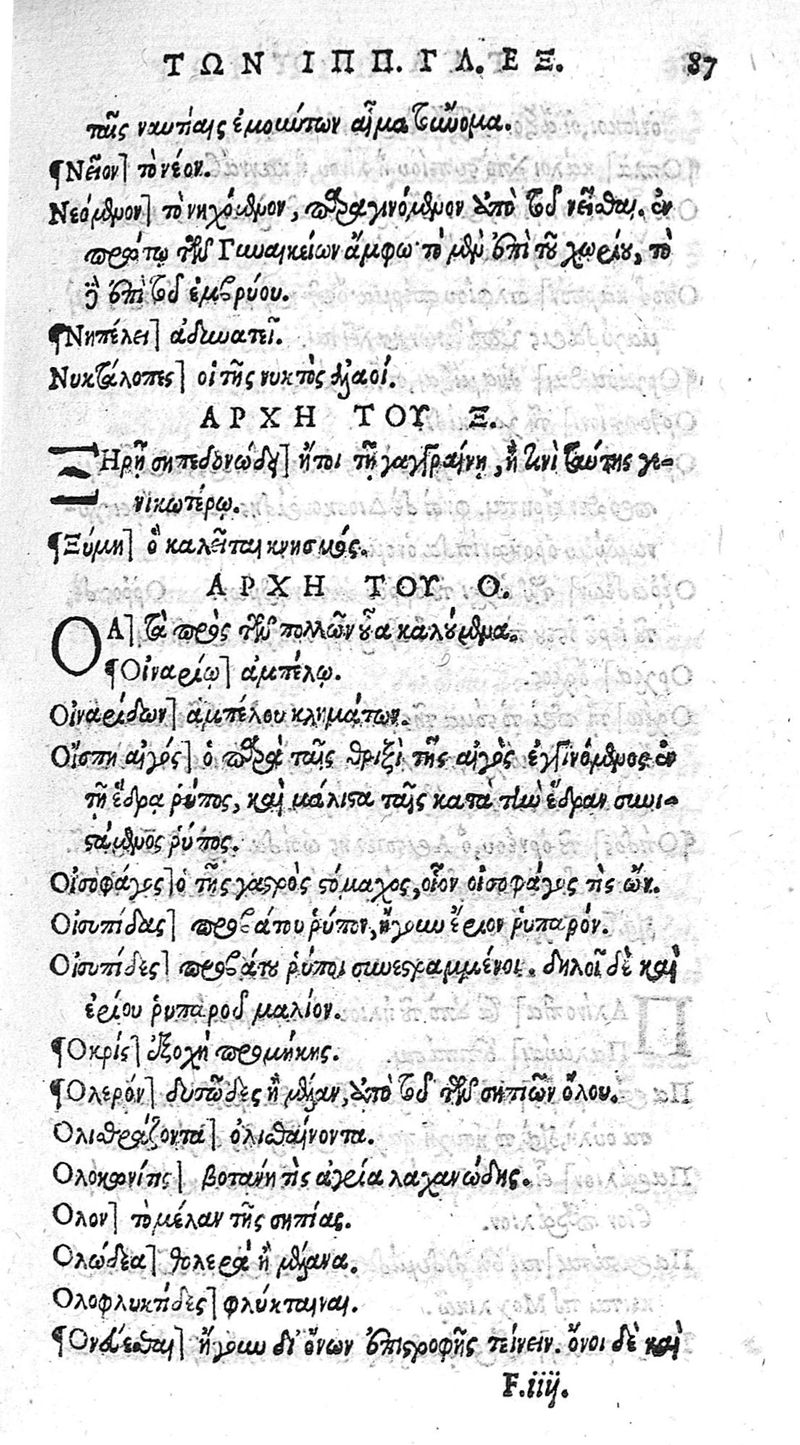 ΤΩΝ ΙΠΠ. ΓΛ. ΕΞ. 87
ταῖς ναυτίαις ἐμούντων αἷμα τοὔνομα.
¶Νεῖον] τὸ νέον.
Νεόμενον] τὸ νηχόμενον, παραγινόμενον ἀπὸ τοῦ νεῖσθαι. ἐν
πρώτῳ τῶν Γυναικείων ἄμφω· τὸ μὲν ἐπὶ τοῦ χωρίου, τὸ
δὲ ἐπὶ τοῦ ἐμβρύου.
¶Νηπέλει] ἀδυνατεῖ.
Νυκτάλοπες] οἱ τῆς νυκτὸς ἀλαοί.
ΑΡΧΗ ΤΟΥ Ξ.
ΞΗρῇ σηπεδονώδει] ἤτοι τῇ γαγγραίνῃ, ἢ τινὶ ταύτης γε-
νικωτέρῳ.
¶Ξύμη] ὃ καλεῖται κνησμός.
ΑΡΧΗ ΤΟΥ Ο.
ΟΑ] τὰ πρὸς τῶν πολλῶν ὖα καλούμενα.
¶Οἰναρίῳ] ἀμπέλῳ.
Οἰναρίδων] ἀμπέλου κλημάτων.
Οἴσπη αἰγός] ὁ παρὰ ταῖς θριξὶ τῆς αἰγὸς ἐγγινόμενος ἐν
τῇ ἕδρα ῥύπος, καὶ μάλιστα ταῖς κατὰ τὴν ἕδραν συνι-
στάμενος ῥύπος.
Οἰσοφάγος] ὁ τῆς γαστρὸς στόμαχος, οἷον οἰσοφάγος τὶς ὤν.
Οἰσυπίδας] προβάτου ῥύπον, ἤγουν ἔριον ῥυπαρόν.
Οἰσυπίδες] προβάτου ῥύποι συνεστραμμένοι. δηλοῖ δὲ καὶ
ἐρίου ῥυπαροῦ μαλίον.
¶Οκρίς] ἐξοχὴ προμήκης.
¶Ολερόν] δυσῶδες ἢ μέλαν, ἀπὸ τοῦ τῶν σηπιῶν ὅλου.
Ολισθράζοντα] ὀλισθαίνοντα.
Ολοκωνίτις] βοτανή τὶς ἀγρία λαχανώδης.
Ολον] τὸ μέλαν τῆς σηπίας.
Ολώδεα] θολερὰ ἢ μέλανα.
Ολοφλυκτίδες] φλύκταιναι.
¶Ονεύεσθαι] ἤγουν δι' ὄνων ἐπιστροφῆς τείνειν. ὄνοι δὲ καὶ
F. iiij.